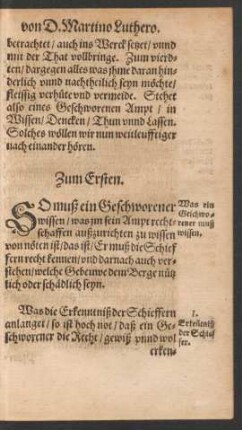 von D. Martino Luthero.
betrachtet / auch ins Werck setzet / vnnd
mit der That vollbringe. Zum vierd-
ten / dargegen alles was ihme daran hin-
derlich vnnd nachtheilich seyn möchte /
fleissig verhüte vnd vermeide. Stehet
also eines Geschworenen Ampt / in
Wissen / Dencken / Thun vnnd Lassen.
Solches wöllen wir nun weitleufftiger
nach einander hören.
Zum Ersten.
SO muß ein Geschworener
wissen / was jm sein Ampt recht-
schaffen außzurichten zu wissen
von nöten ist / das ist / Er muß die Schief
fern recht kennen / vnd darnach auch ver-
stehen / welche Gebeuwe dem Berge nütz
lich oder schädlich seyn.
Was ein
Geschwo-
rener muß
wissen.
Was die Erkenntniß der Schieffern
anlanget / so ist hoch not / daß ein Ge-
schworener die Recht / gewiß vnnd wol
erken-
1.
Erkenntniß
der Schief
fer.